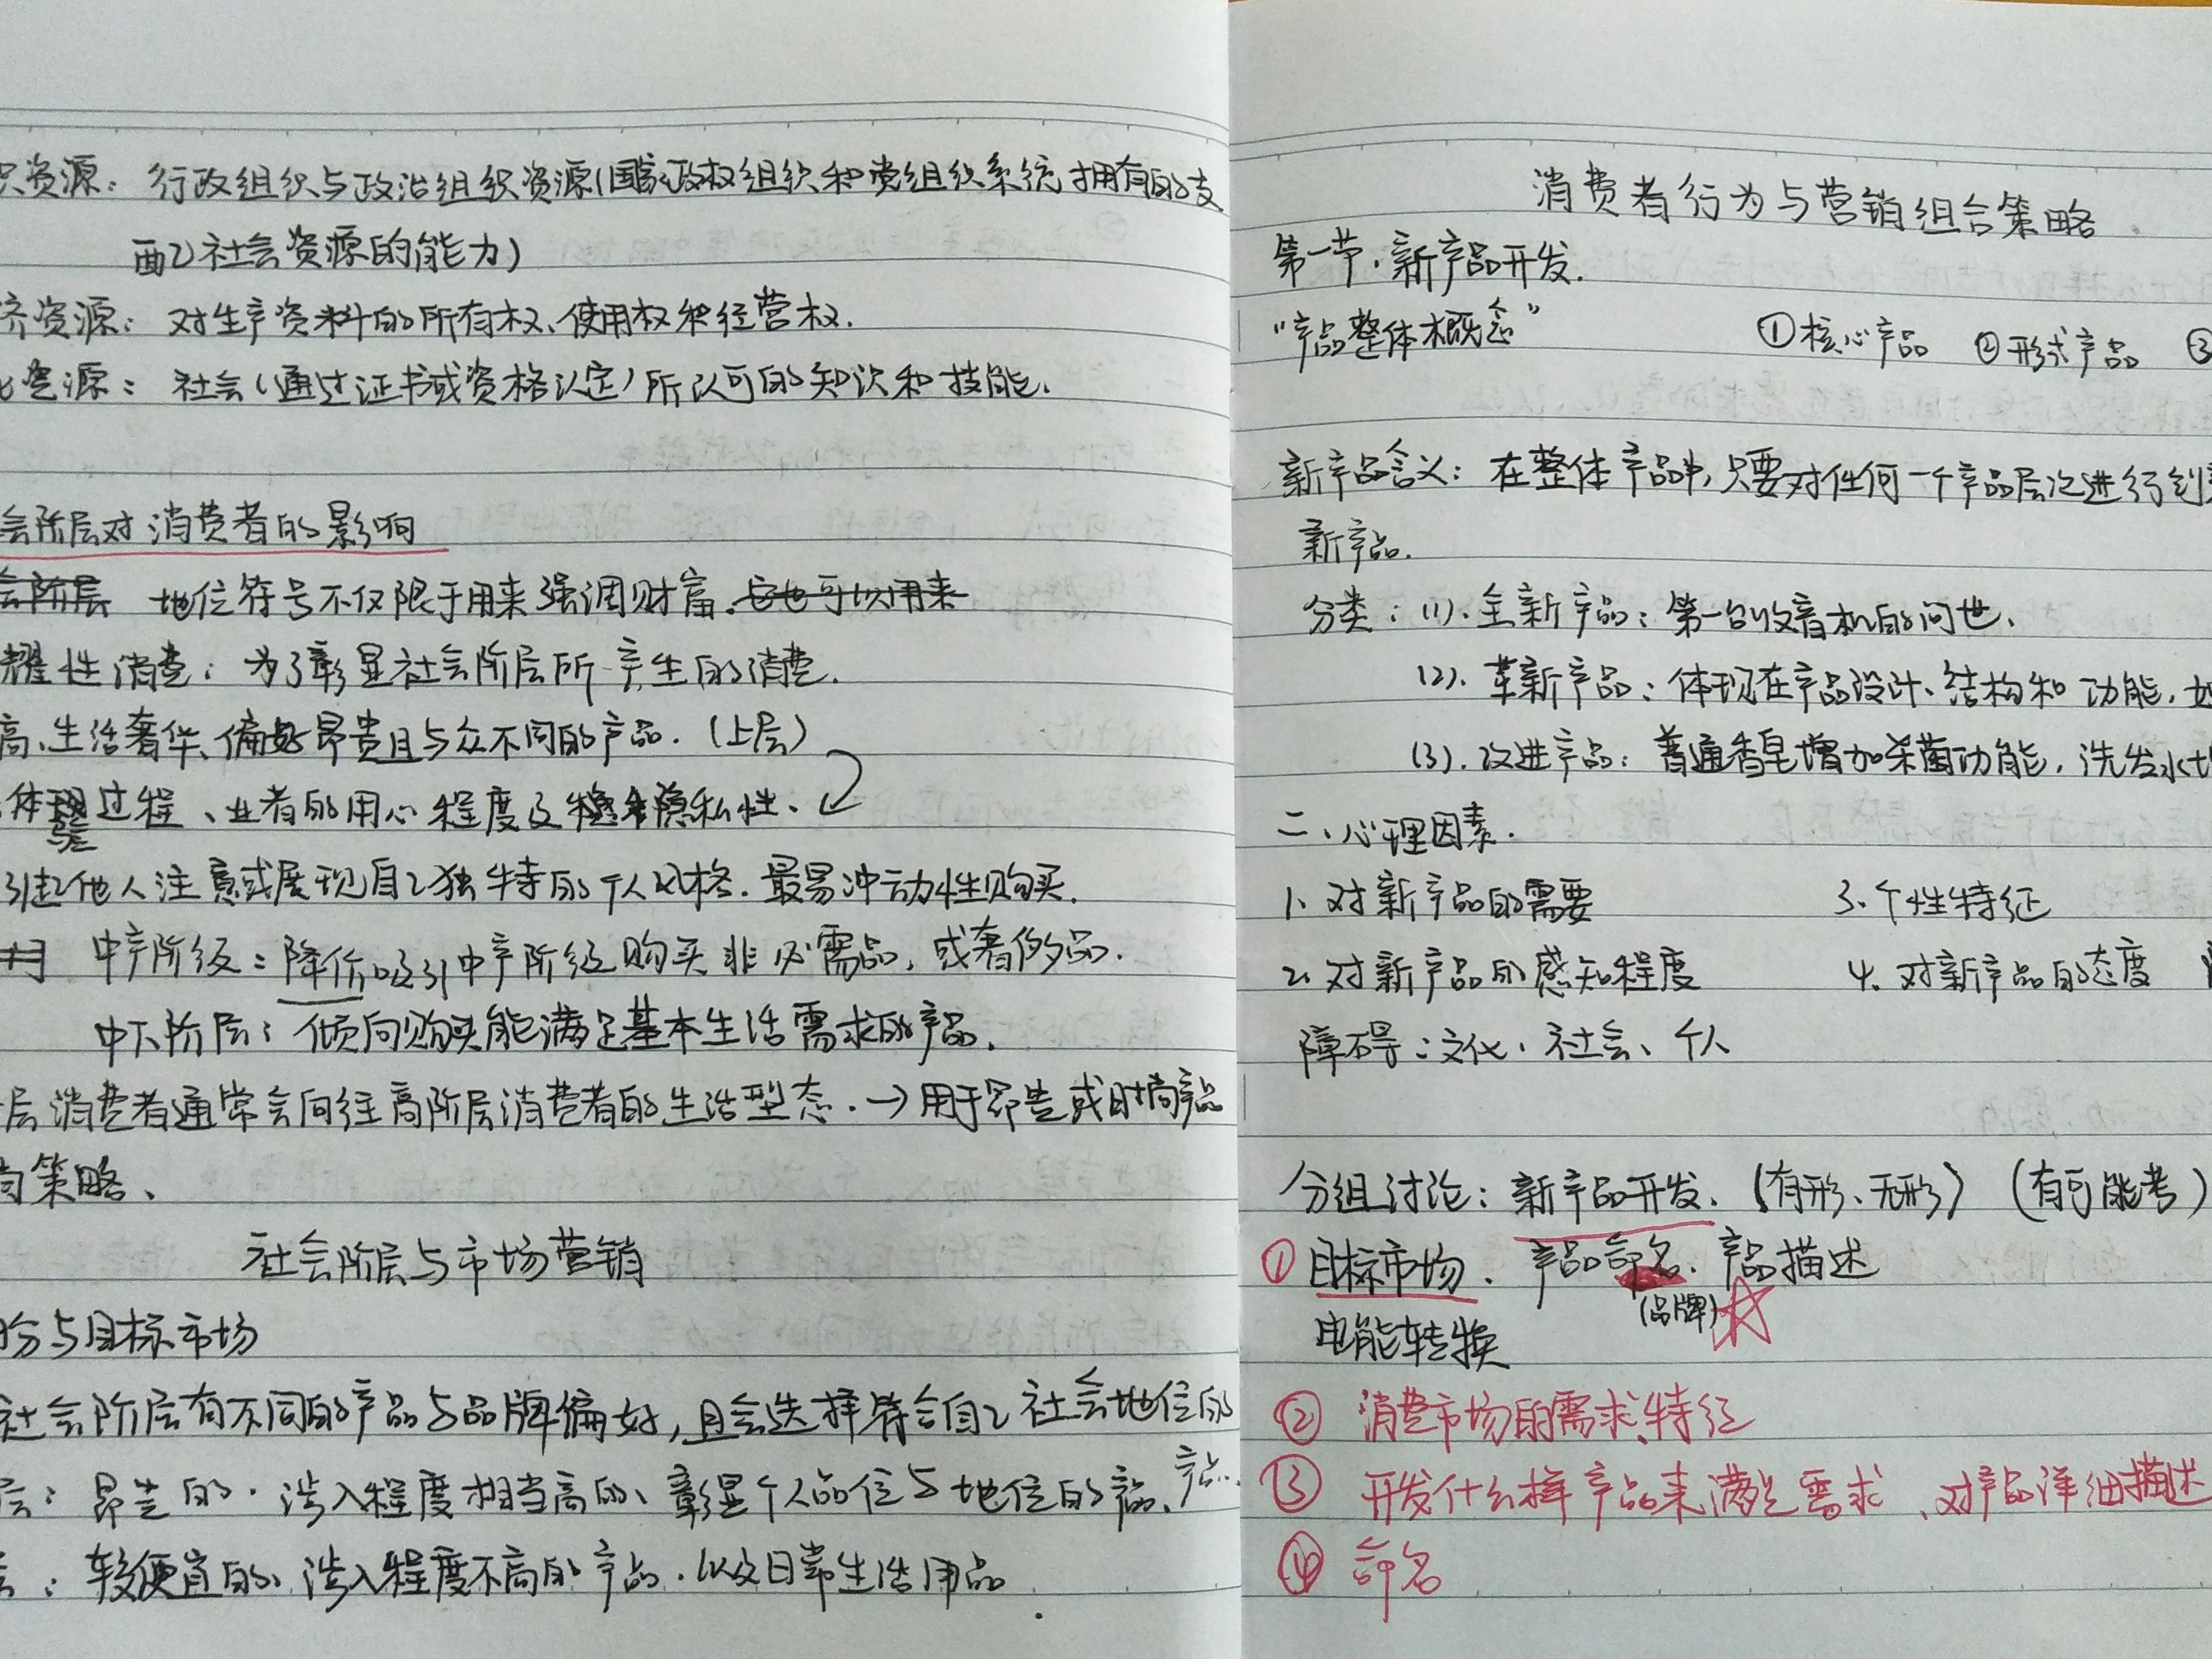 资源：行政组织与政治组织资源(国家政权组织和党组织系统拥有的支
配社会资源的能力)
济资源：对生产资料的所有权、使用权和经营权.
资源：社会(通过证书或资格认定)所认可的知识和技能.
会阶层对消费者的影响
会阶层 地位符号不仅限于用来强调财富.它也可以用来
耀性消费：为了彰显社会阶层所产生的消费.
高、生活奢华、偏好昂贵且与众不同的产品.(上层)
体验过程、业者的用心程度及隐私性、
引起他人注意或展现自己独特的个人风格.最易冲动性购买.
中产阶级：降价吸引中产阶级购买非必需品,或奢侈品.
中下阶层：倾向购买能满足基本生活需求的产品.
层消费者通常会向往高阶层消费者的生活型态.→用于昂贵或时尚产品
策略、
社会阶层与市场营销
分与目标市场
社会阶层有不同的产品与品牌偏好,且会选择符合自己社会地位的
层：昂贵的.涉入程度相当高的、彰显个人品位与地位的产品、产品.
：较便宜的、涉入程度不高的产品.以及日常生活用品
消费者行为与营销组合策略
第一节.新产品开发.
“产品整体概念” ①核心产品 ②形式产品 ③
新产品含义：在整体产品中,只要对任何一个产品层次进行创
新产品.
分类：(1).全新产品：第一台收音机的问世.
(2).革新产品：体现在产品设计、结构和功能,如
(3).改进产品：普通香皂增加杀菌功能.洗发水
二、心理因素.
1、对新产品的需要 3、个性特征
2、对新产品的感知程度 4、对新产品的态度
障碍：文化、社会、个人
分组讨论：新产品开发.(有形、无形)(有可能考)
①目标市场.产品命名.产品描述
(品牌)
电能转换
② 消费市场的需求、特征
③ 开发什么样产品来满足需求、对产品详细描述
④ 命名